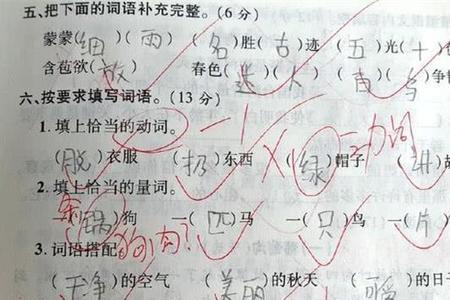 五、把下面的词语补充完整。(6 分)
蒙蒙(细)(雨) (名)胜(古)迹 (五)光(十)
含苞欲(放) 春色(迷)(人) (百)(鸟)争
六、按要求填写词语。(13 分)
-1
1. 填上恰当的动词。 动词
(脱)衣服 (扔)东西 (绿)帽子 (讲)故
2. 填上恰当的量词。
条
(锅)狗 一(匹)马 一(只)鸟 一(片)
3. 词语搭配 狗肉?
(干净)的空气 (美丽)的秋天 ( )的日